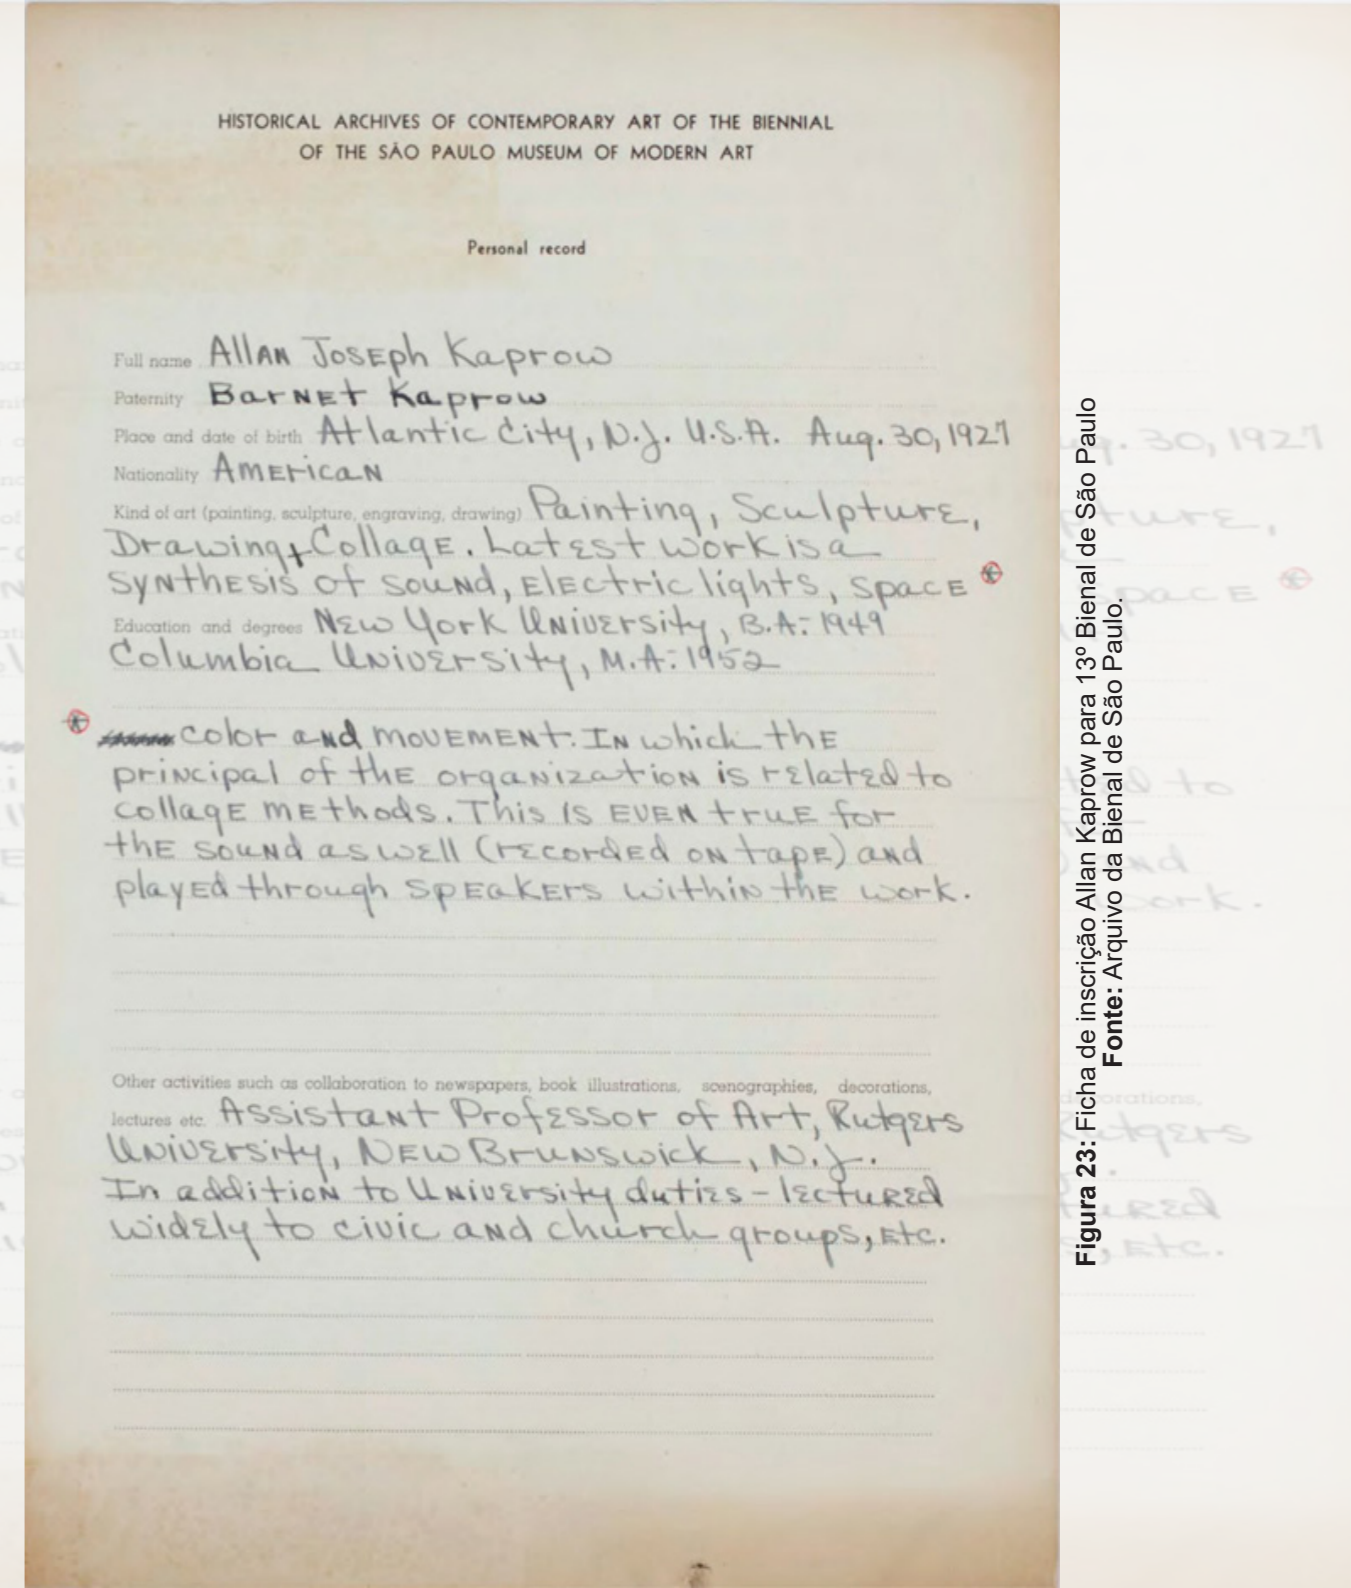 HISTORICAL ARCHIVES OF CONTEMPORARY ART OF THE BIENNIAL
OF THE SÃO PAULO MUSEUM OF MODERN ART
Personal record
Full name Allan Joseph Kaprow
Paternity Barnet Kaprow
Place and date of birth Atlantic City, N.J. U.S.A. Aug. 30, 1927
Nationality American
Kind of art (painting, sculpture, engraving, drawing) Painting, Sculpture,
Drawing + Collage. Latest work is a
synthesis of sound, electric lights, space *
Education and degrees New York University, B.A.: 1949
Columbia University, M.A.: 1952
* color and movement. In which the
principal of the organization is related to
collage methods. This is even true for
the sound as well (recorded on tape) and
played through speakers within the work.
Other activities such as collaboration to newspapers, book illustrations, scenographies, decorations,
lectures etc. Assistant Professor of Art, Rutgers
University, New Brunswick, N.J.
In addition to University duties - lectured
widely to civic and church groups, etc.
Figura 23: Ficha de inscrição Allan Kaprow para 13º Bienal de São Paulo
Fonte: Arquivo da Bienal de São Paulo.